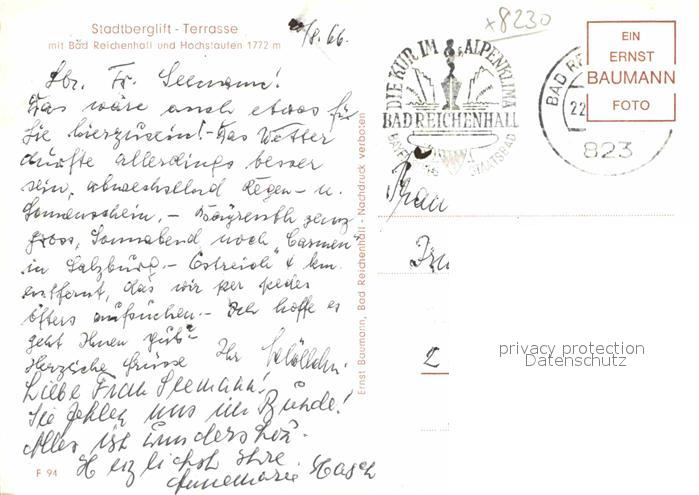 Stadtberglift - Terrasse
mit Bad Reichenhall und Hochstaufen 1772 m
/8. 66.
x8230
Lbr. Fr. Seemann!
Das wäre auch etwas für
Sie hierzusein! - Das Wetter
dürfte allerdings besser
sein, abwechselnd Regen - u.
Sonnenschein. - Bayreuth ganz
gross, Sonnabend noch "Carmen"
in Salzburg. - Östreich 4 km.
entfernt, das wir per pedes
öfters aufsuchen. - Ich hoffe es
geht Ihnen gut.
Herzliche Grüsse Ihr
Liebe Frau Seemann!
Sie fehlen uns im Bunde!
Alles ist wunderschön.
Herzlichst Ihre
Annemarie Hasch
F 94
Ernst Baumann, Bad Reichenhall - Nachdruck verboten
DIE KUR IM ALPENKLIMA
BAD REICHENHALL
STAATSBAD
BAD RE
22
823
EIN
ERNST
BAUMANN
FOTO
Frau
privacy protection
Datenschutz